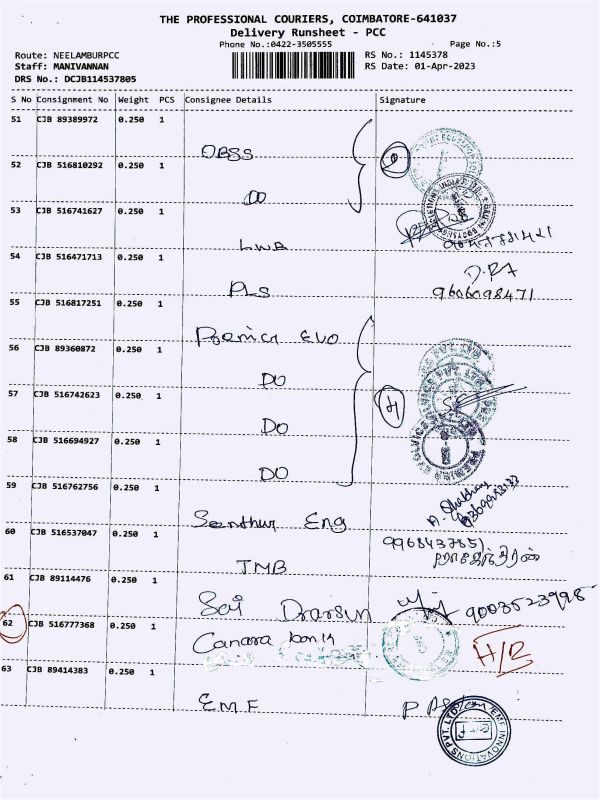 THE PROFESSIONAL COURIERS, COIMBATORE-641037
Delivery Runsheet - PCC
Phone No.:0422-3505555
Page No.:5
Route: NEELAMBURPCC
RS No.: 1145378
Staff: MANIVANNAN
RS Date: 01-Apr-2023
DRS No.: DCJB114537805
S No Consignment No Weight PCS Consignee Details Signature
51 CJB 89389972 0.250 1
OBSS
52 CJB 516810292 0.250 1
DO
53 CJB 516741627 0.250 1
LWA
54 CJB 516471713 0.250 1
PLS
9606098471
55 CJB 516817251 0.250 1
Premier EVO
56 CJB 89360872 0.250 1
DO
57 CJB 516742623 0.250 1
DO
58 CJB 516694927 0.250 1
DO
59 CJB 516762756 0.250 1
Senthur Eng
60 CJB 516537047 0.250 1
TMB
9968437851
ராஜேந்திரன்
61 CJB 89114476 0.250 1
Sai Drarsun
9003523998
62 CJB 516777368 0.250 1
Canara bank
H/R
63 CJB 89414383 0.250 1
E.M.F
EMF INNOVATIONS PVT. LTD.